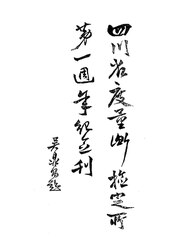 四川省度量衡检定所
第一週年纪念刊
吴鼎昌题